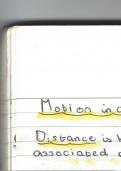 Motion in a
Distance is
associated